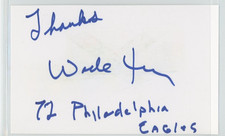 Thanks
Wade Key
72 Philadelphia
EAGLES